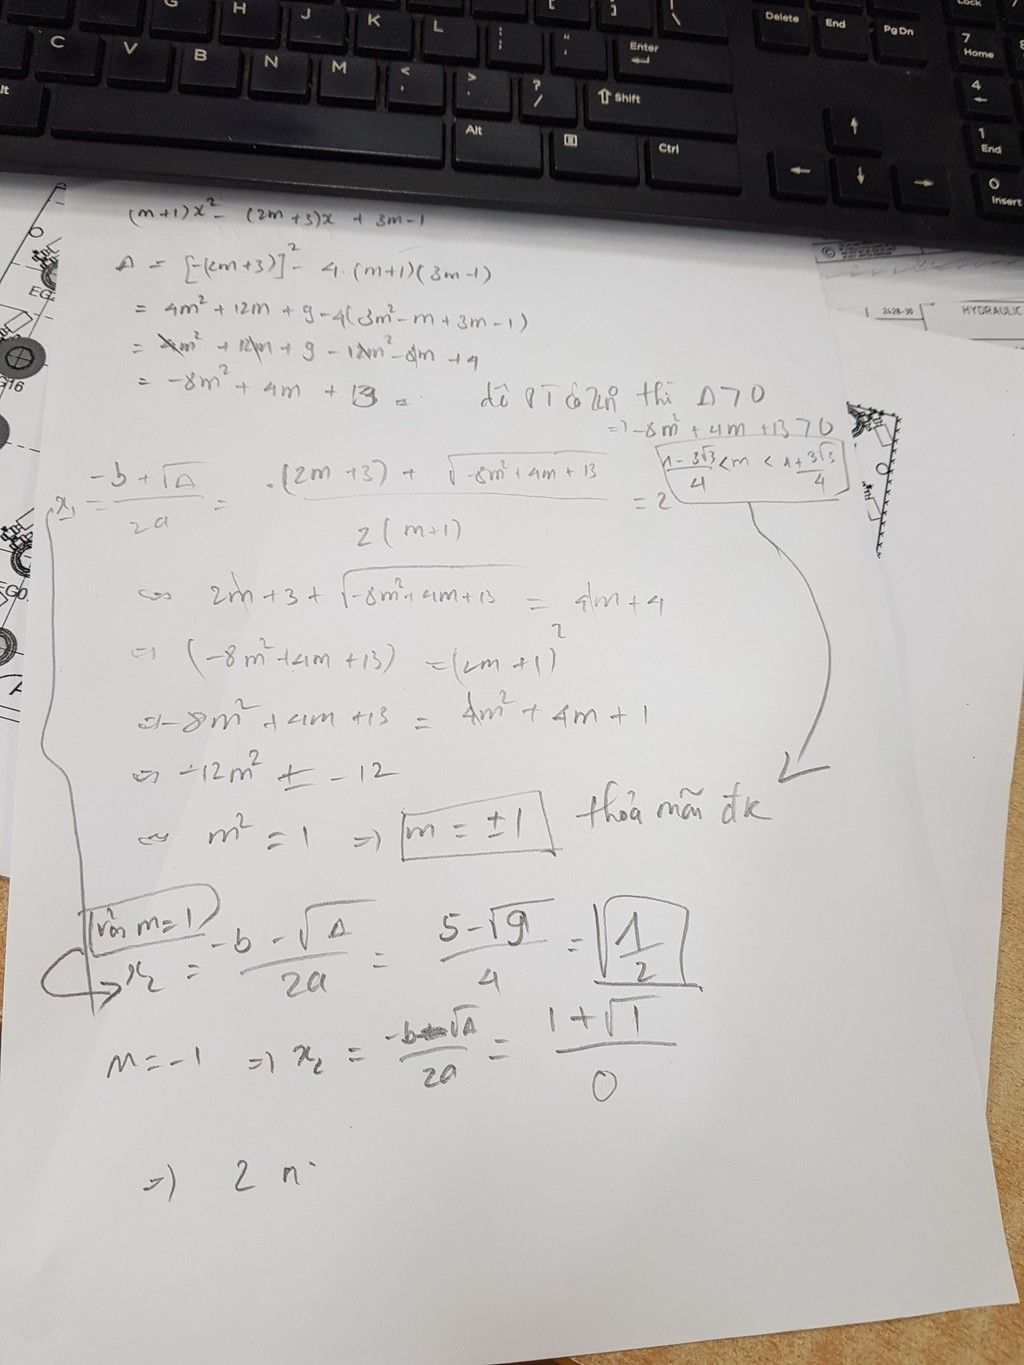 G H J K L : ; " ' Enter
Delete End PgDn
Lock
7 Home
8
C V B N M < , > . ? / Shift
4
Alt Ctrl
1 End
0 Insert
(m+1)x² - (2m+3)x + 3m-1
Δ = [-(2m+3)]² - 4.(m+1)(3m-1)
= 4m² + 12m + 9 - 4(3m² - m + 3m - 1)
= 4m² + 12m + 9 - 12m² - 8m + 4
= -8m² + 4m + 13
thì Δ > 0
=> -8m² + 4m + 13 > 0
(1-3√3)/4 < m < (1+3√3)/4
x₁ = (-b + √Δ)/2a = ((2m+3) + √(-8m²+4m+13))/(2(m+1)) = 2
⇔ 2m+3+√(-8m²+4m+13) = 4m+4
=> (-8m²+4m+13) = (2m+1)²
=> -8m²+4m+13 = 4m²+4m+1
⇔ -12m² = -12
⇔ m² = 1 => m = ±1 thỏa mãn đk
với m=1
x₂ = (-b - √Δ)/2a = (5-√9)/4 = 1/2
m = -1 => x₂ = (-b-√Δ)/2a = (1+√1)/0
=> 2 n
EG
G16
EG0
2428-30
HYDRAULIC